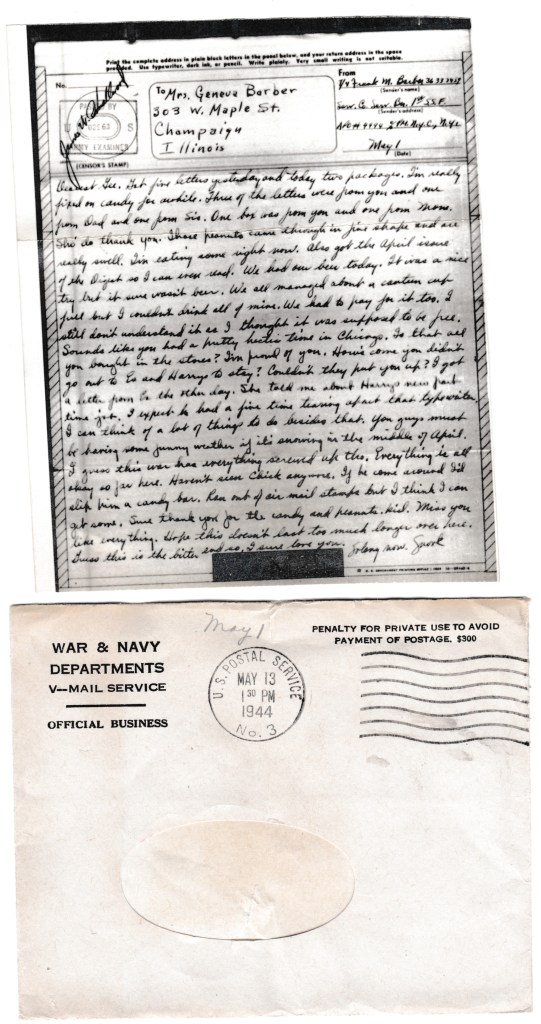 Print the complete address in plain block letters in the panel below, and your return address in the space
provided. Use typewriter, dark ink, or pencil. Write plainly. Very small writing is not suitable.
No.
To Mrs. Geneva Barber
303 W. Maple St.
Champaign
Illinois
From
T/4 Frank M. Barber
(Sender's name)
Serv. Co. Serv. Bn. 1st S.S.F.
(Sender's address)
APO # 4994 % P.M. N.Y.C., N.Y.
May 1
(Date)
PASSED BY
U S
ARMY EXAMINER
(CENSOR'S STAMP)
Dearest Gee. Got five letters yesterday and today two packages. I'm really
fixed on candy for awhile. Three of the letters were from you and one
from Dad and one from Sis. One box was from you and one from Mom.
Sho' do thank you. Those peanuts came through in fine shape and are
really swell. I'm eating some right now. Also got the April issue
of the Digest so I can even read. We had our beer today. It was a nice
try but it sure wasn't beer. We all managed about a canteen cup
full but I couldn't drink all of mine. We had to pay for it too. I
still don't understand it as I thought it was supposed to be free.
Sounds like you had a pretty hectic time in Chicago. Is that all
you bought in the stores? I'm proud of you. How's come you didn't
go out to Es and Harrys to stay? Couldn't they put you up? I got
a letter from Es the other day. She told me about Harrys new part
time job. I expect he had a fine time tearing apart that typewriter
I can think of a lot of things to do besides that. You guys must
be having some funny weather if it's snowing in the middle of April.
I guess this war has everything screwed up tho. Everything is all
okay so far here. Haven't seen Chick anymore. If he come around I'd
slip him a candy bar. Ran out of air mail stamps but I think I can
get some. Sure thank you for the candy and peanuts, kid. Miss you
like everything. Hope this doesn't last too much longer over here.
Guess this is the bitter end so, I sure love you. So long now.
WAR & NAVY
DEPARTMENTS
V--MAIL SERVICE
OFFICIAL BUSINESS
May 1
U.S. POSTAL SERVICE
MAY 13
1 30 PM
1944
No. 3
PENALTY FOR PRIVATE USE TO AVOID
PAYMENT OF POSTAGE, $300